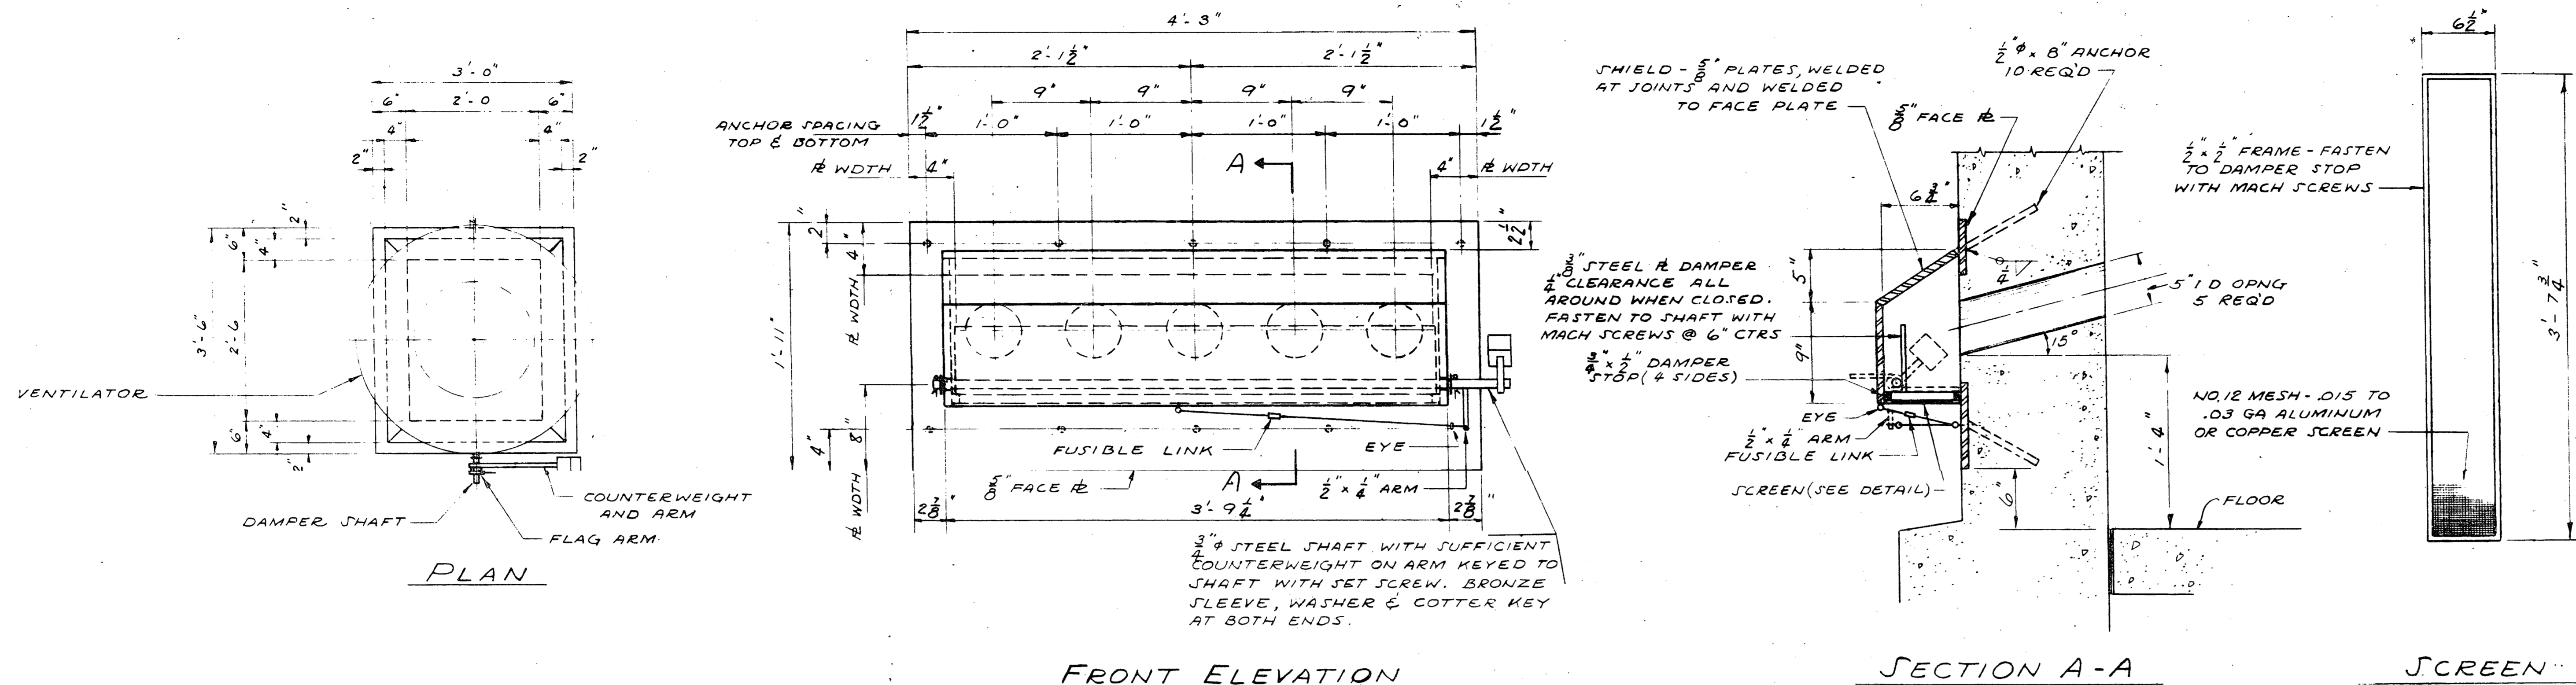 3'-0"
6" 2'-0 6"
4" 4"
2" 2"
2"
6"
4"
3'-6"
2'-6
6"
4"
2"
VENTILATOR
COUNTERWEIGHT
AND ARM
DAMPER SHAFT
FLAG ARM
PLAN
4'-3"
2'-1 1/2" 2'-1 1/2"
9" 9" 9" 9"
ANCHOR SPACING
TOP & BOTTOM
1 1/2" 1'-0" 1'-0" 1'-0" 1'-0" 1 1/2"
PL WDTH 4" A 4" PL WDTH
2"
4"
PL WDTH
2 1/2"
1'-11"
8"
4"
PL WDTH
FUSIBLE LINK
EYE
5/8" FACE PL
A
1/2" x 1/4" ARM
2 7/8" 3'-9 1/4" 2 7/8"
3/4" φ STEEL SHAFT WITH SUFFICIENT
COUNTERWEIGHT ON ARM KEYED TO
SHAFT WITH SET SCREW. BRONZE
SLEEVE, WASHER & COTTER KEY
AT BOTH ENDS.
FRONT ELEVATION
SHIELD - 5/8" PLATES, WELDED
AT JOINTS AND WELDED
TO FACE PLATE
1/2" φ x 8" ANCHOR
10 REQ'D
5/8" FACE PL
6 3/4"
3/8" STEEL PL DAMPER
1/4" CLEARANCE ALL
AROUND WHEN CLOSED.
FASTEN TO SHAFT WITH
MACH SCREWS @ 6" CTRS
3/4" x 1/2" DAMPER
STOP (4 SIDES)
5"
9"
1/4
5" I D OPNG
5 REQ'D
15°
EYE
1/2" x 1/4" ARM
FUSIBLE LINK
SCREEN (SEE DETAIL)
6"
1'-4"
FLOOR
SECTION A-A
6 1/2"
1/2" x 1/2" FRAME - FASTEN
TO DAMPER STOP
WITH MACH SCREWS
3'-7 3/4"
NO. 12 MESH - .015 TO
.03 GA ALUMINUM
OR COPPER SCREEN
SCREEN